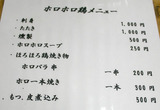 ホロホロ鶏メニュー
・刺身 1,000円
・たたき 1,000円
・燻製 500円
・ホロホロスープ 250円
・ほろほろ鶏焼き物
ホロバラ串 一本 200円
ホロ一本焼き 一本 500円
・もつ、皮煮込み 500円